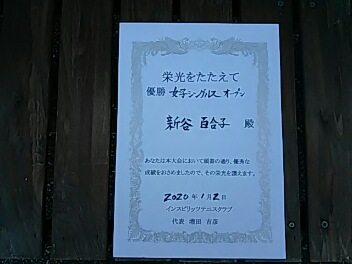 栄光をたたえて
優勝 女子シングルス オープン
新谷 百合子 殿
あなたは本大会において頭書の通り、優秀な
成績をおさめましたので、その栄光を讃えます。
2020年1月2日
インスピリッツテニスクラブ
代表 増田 吉彦